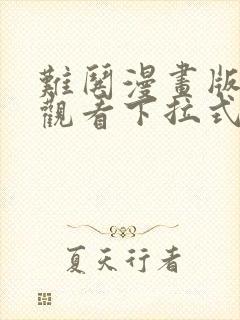 難閱漫畫版
觀看下拉式
夏天行者